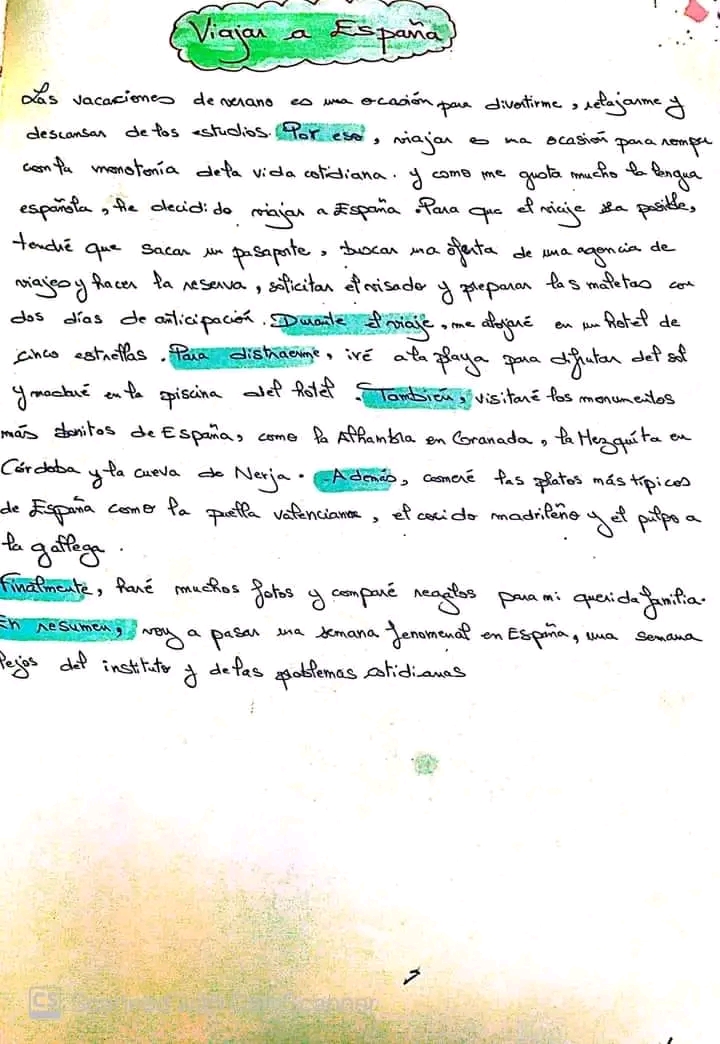 Viajar a España
Las vacaciones de verano es una ocasión para divertirme, relajarme y
descansar de los estudios. Por eso, viajar es una ocasión para romper
con la monotonía de la vida cotidiana. y como me gusta mucho la lengua
española, he decidido viajar a España. Para que el viaje sea posible,
tendré que sacar un pasaporte, buscar una oferta de una agencia de
viajes y hacer la reserva, solicitar el visado y preparar las maletas con
dos días de anticipación. Durante el viaje, me alojaré en un hotel de
cinco estrellas. Para distraerme, iré a la playa para difrutar del sol
y nadaré en la piscina del hotel. También, visitaré los monumentos
más bonitos de España, como la Alhambra en Granada, la Mezquita en
Córdoba y la cueva de Nerja. Además, comeré las platos más típicos
de España como la paella valenciana, el cocido madrileño y el pulpo a
la gallega.
Finalmente, haré muchos fotos y compraré regalos para mi querida familia.
En resumen, voy a pasar una semana fenomenal en España, una semana
lejos del instituto y de las problemas cotidianas
CS Scanned with CamScanner